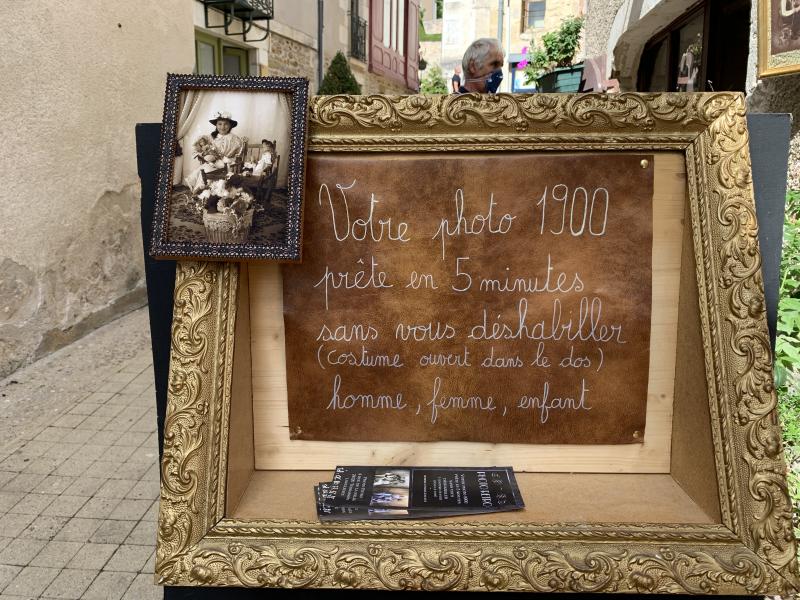 Votre photo 1900
prête en 5 minutes
sans vous déshabiller
(costume ouvert dans le dos)
homme, femme, enfant